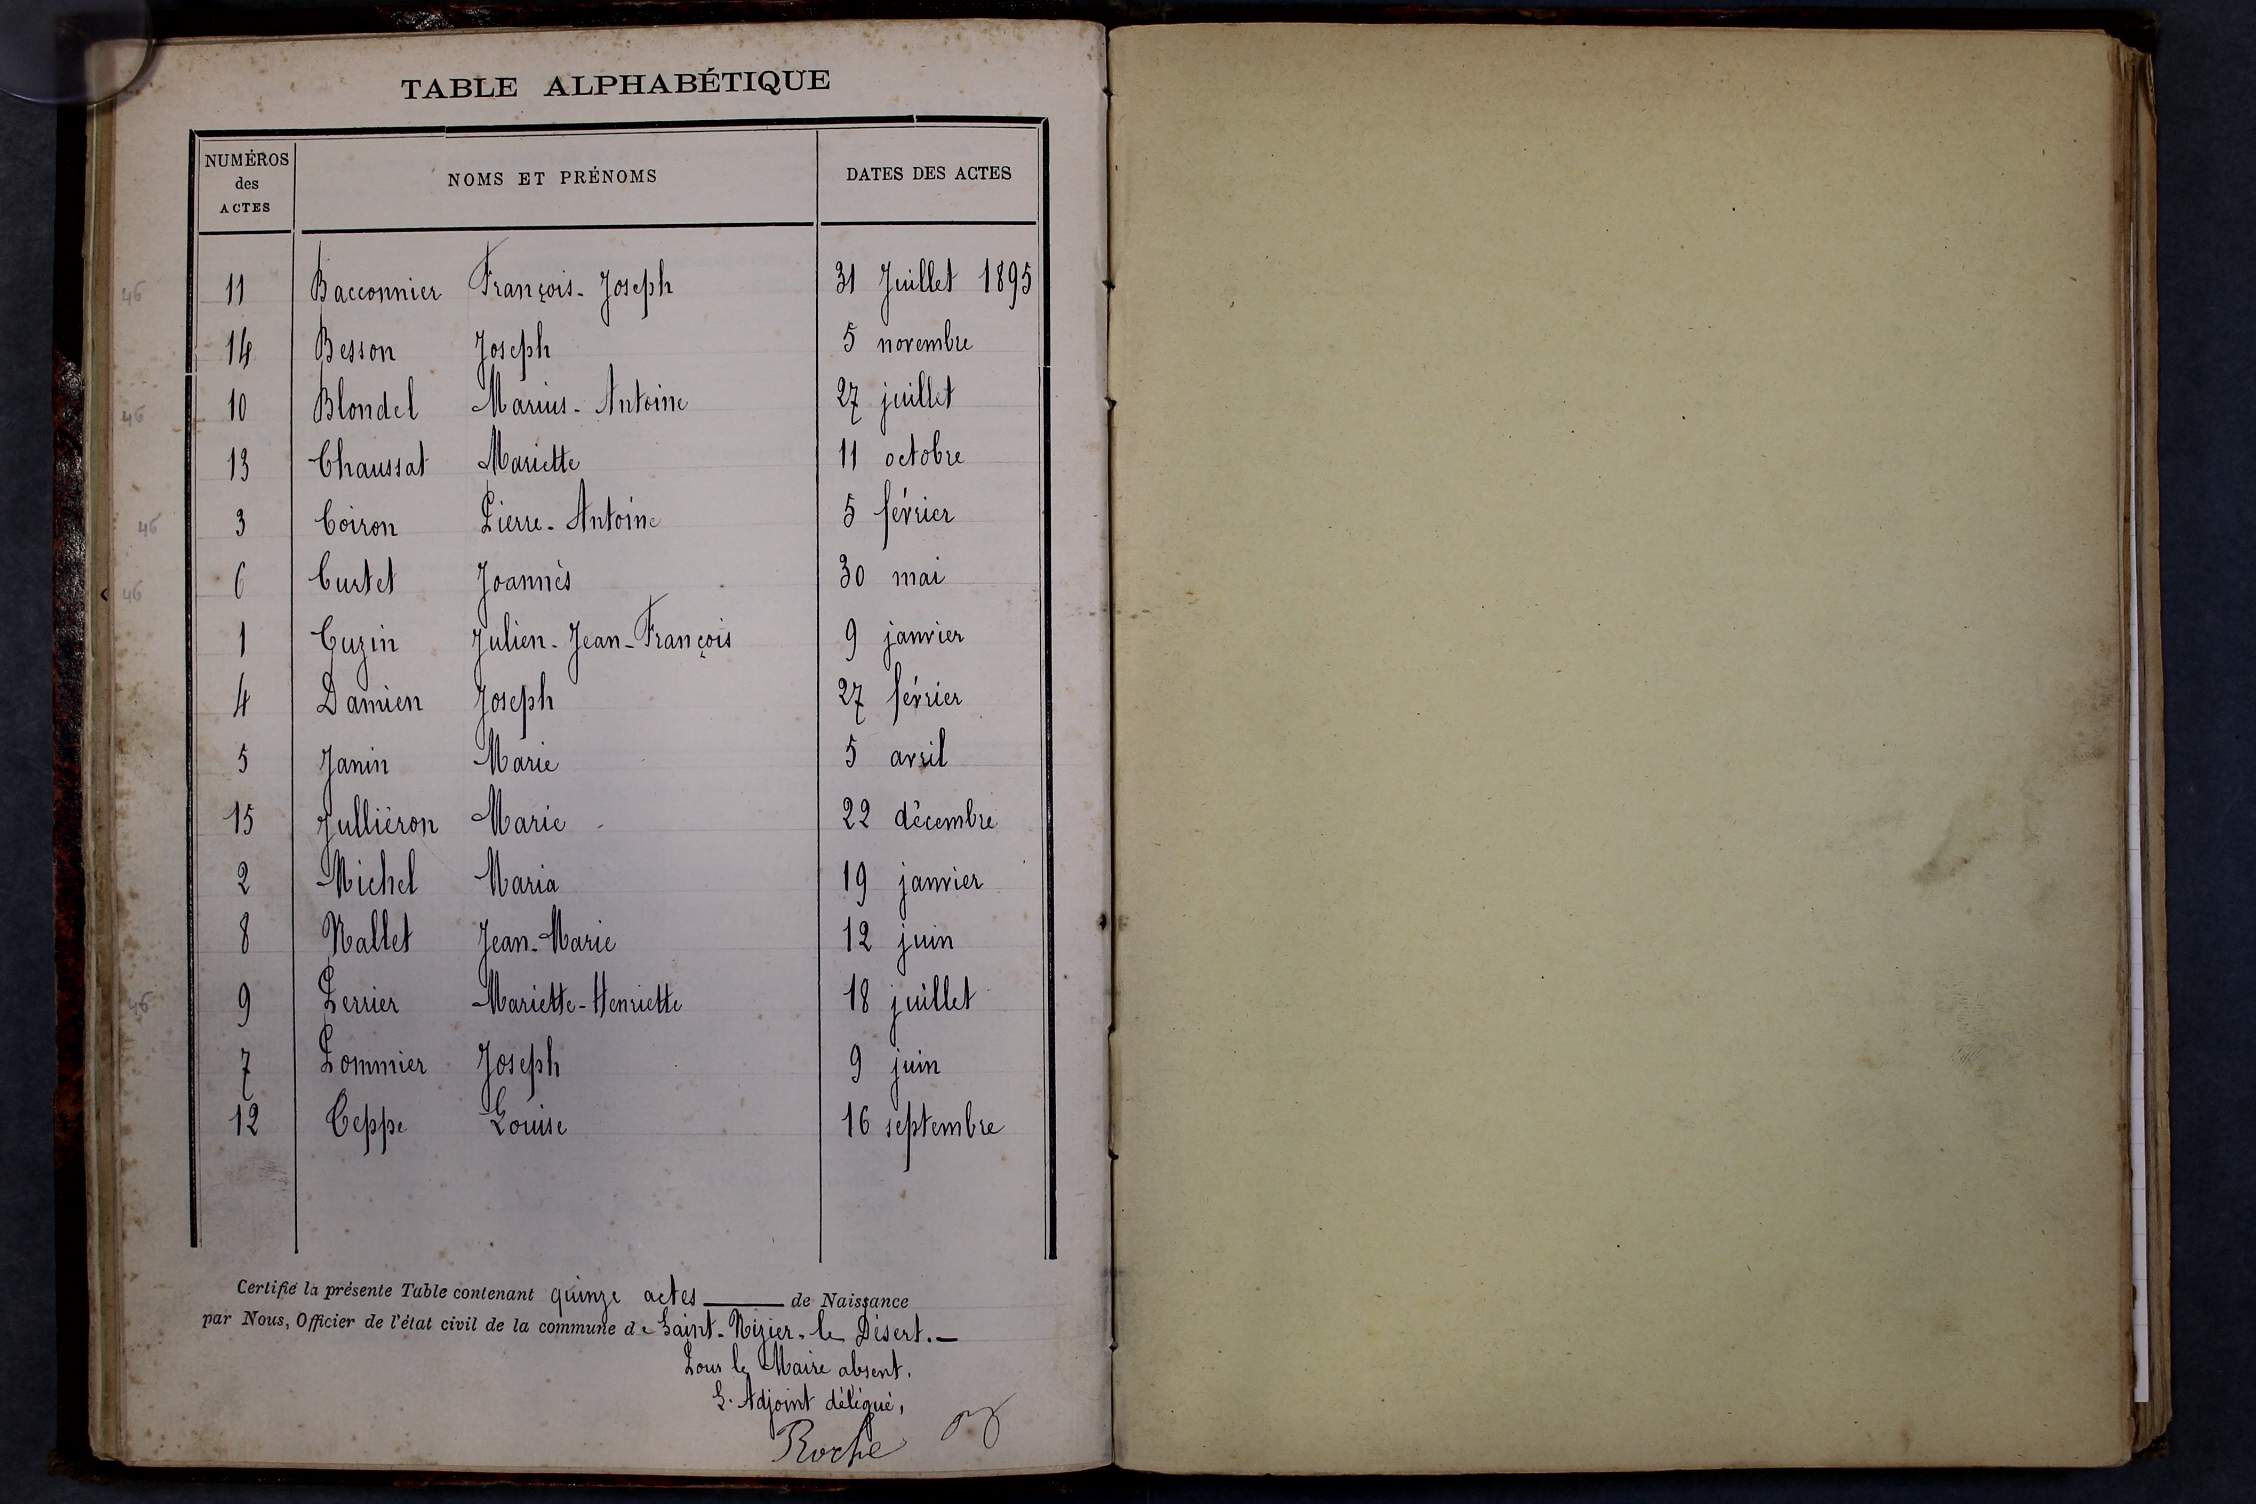 TABLE ALPHABÉTIQUE
NUMÉROS des ACTES NOMS ET PRÉNOMS DATES DES ACTES
46 11 Bacconnier François-Joseph 31 Juillet 1895
14 Besson Joseph 5 novembre
46 10 Blondel Marius-Antoine 27 juillet
13 Chaussat Mariette 11 octobre
46 3 Coiron Pierre-Antoine 5 février
46 6 Curtet Joannès 30 mai
1 Cuzin Julien-Jean-François 9 janvier
4 Damien Joseph 27 février
5 Janin Marie 5 avril
15 Julliéron Marie 22 décembre
2 Michel Maria 19 janvier
8 Nallet Jean-Marie 12 juin
46 9 Perrier Mariette-Henriette 18 juillet
7 Pommier Joseph 9 juin
12 Teppe Louise 16 septembre
Certifié la présente Table contenant quinze actes de Naissance
par Nous, Officier de l'état civil de la commune de Saint-Nizier-le Désert.
Pour le Maire absent.
L'Adjoint délégué,
Roche